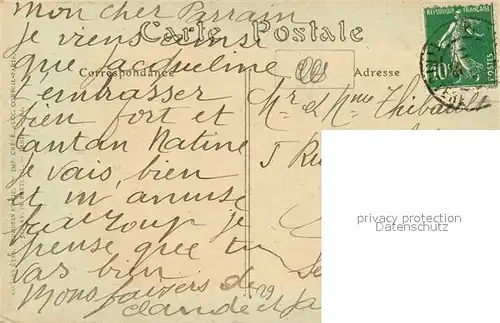 mon cher Parrain
Carte Postale
je viens ainsi
que jacqueline
Correspondance
Adresse
t'embrasser
bien fort et
tantan Natine
je vais bien
et m'amuse
beaucoup je
pense que tu
vas bien
Mons baisers de
claude et Ja
RÉPUBLIQUE FRANÇAISE
10c
POSTES
Mr et Mme Thibault
5 Ru
privacy protection